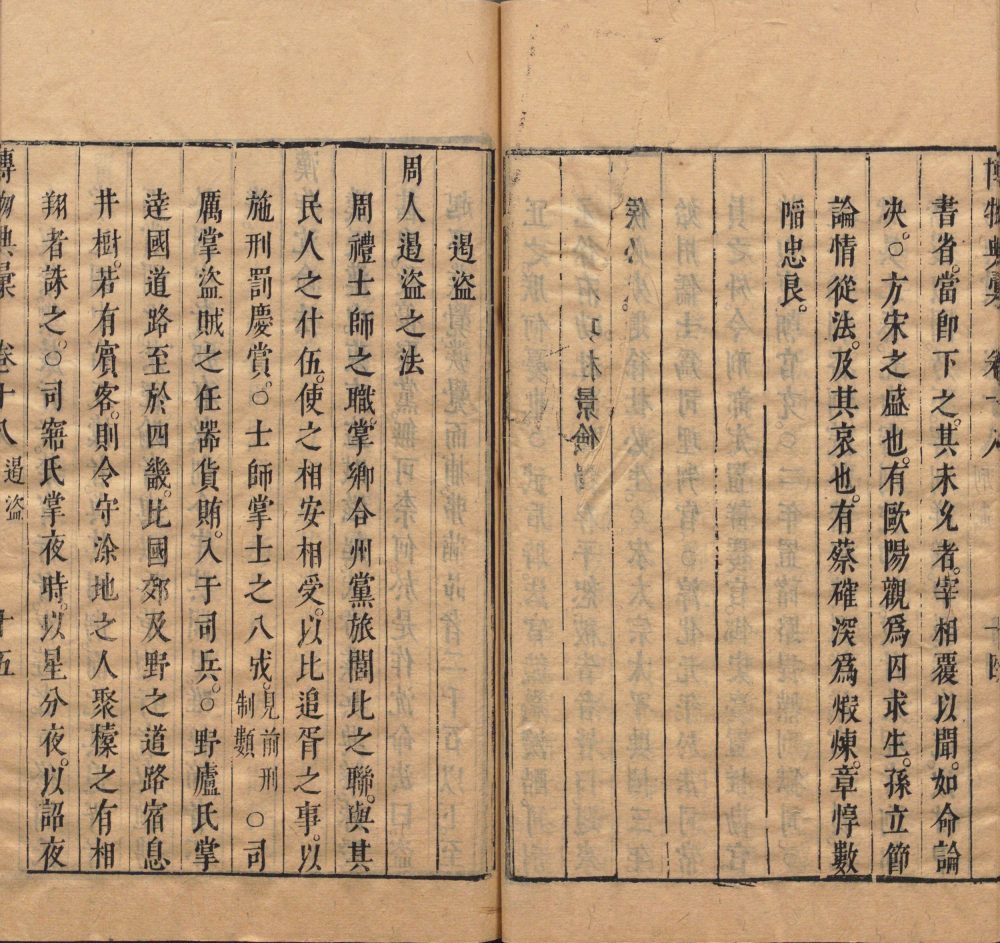 博物典彙　卷十八　十四
書省。當卽下之。其未允者。宰相覆以聞。如命論
决。○方宋之盛也。有歐陽觀爲囚求生。孫立節
論情從法。及其哀也。有蔡確深爲煆煉。章惇數
陷忠良。
遏盜
周人遏盜之法
周禮士師之職。掌鄉合州黨旅閭比之聯。與其
民人之什伍。使之相安相受。以比追胥之事。以
施刑罰慶賞。○士師掌士之八成。見前刑制類○司
厲掌盜賊之任器貨賄。入于司兵。○野廬氏掌
逹國道路至於四畿。比國郊及野之道路宿息
井樹。若有賓客。則令守涂地之人聚橐之有相
翔者誅之。○司寤氏掌夜時。以星分夜。以詔夜
博物典彙　卷十八　遏盜　十五